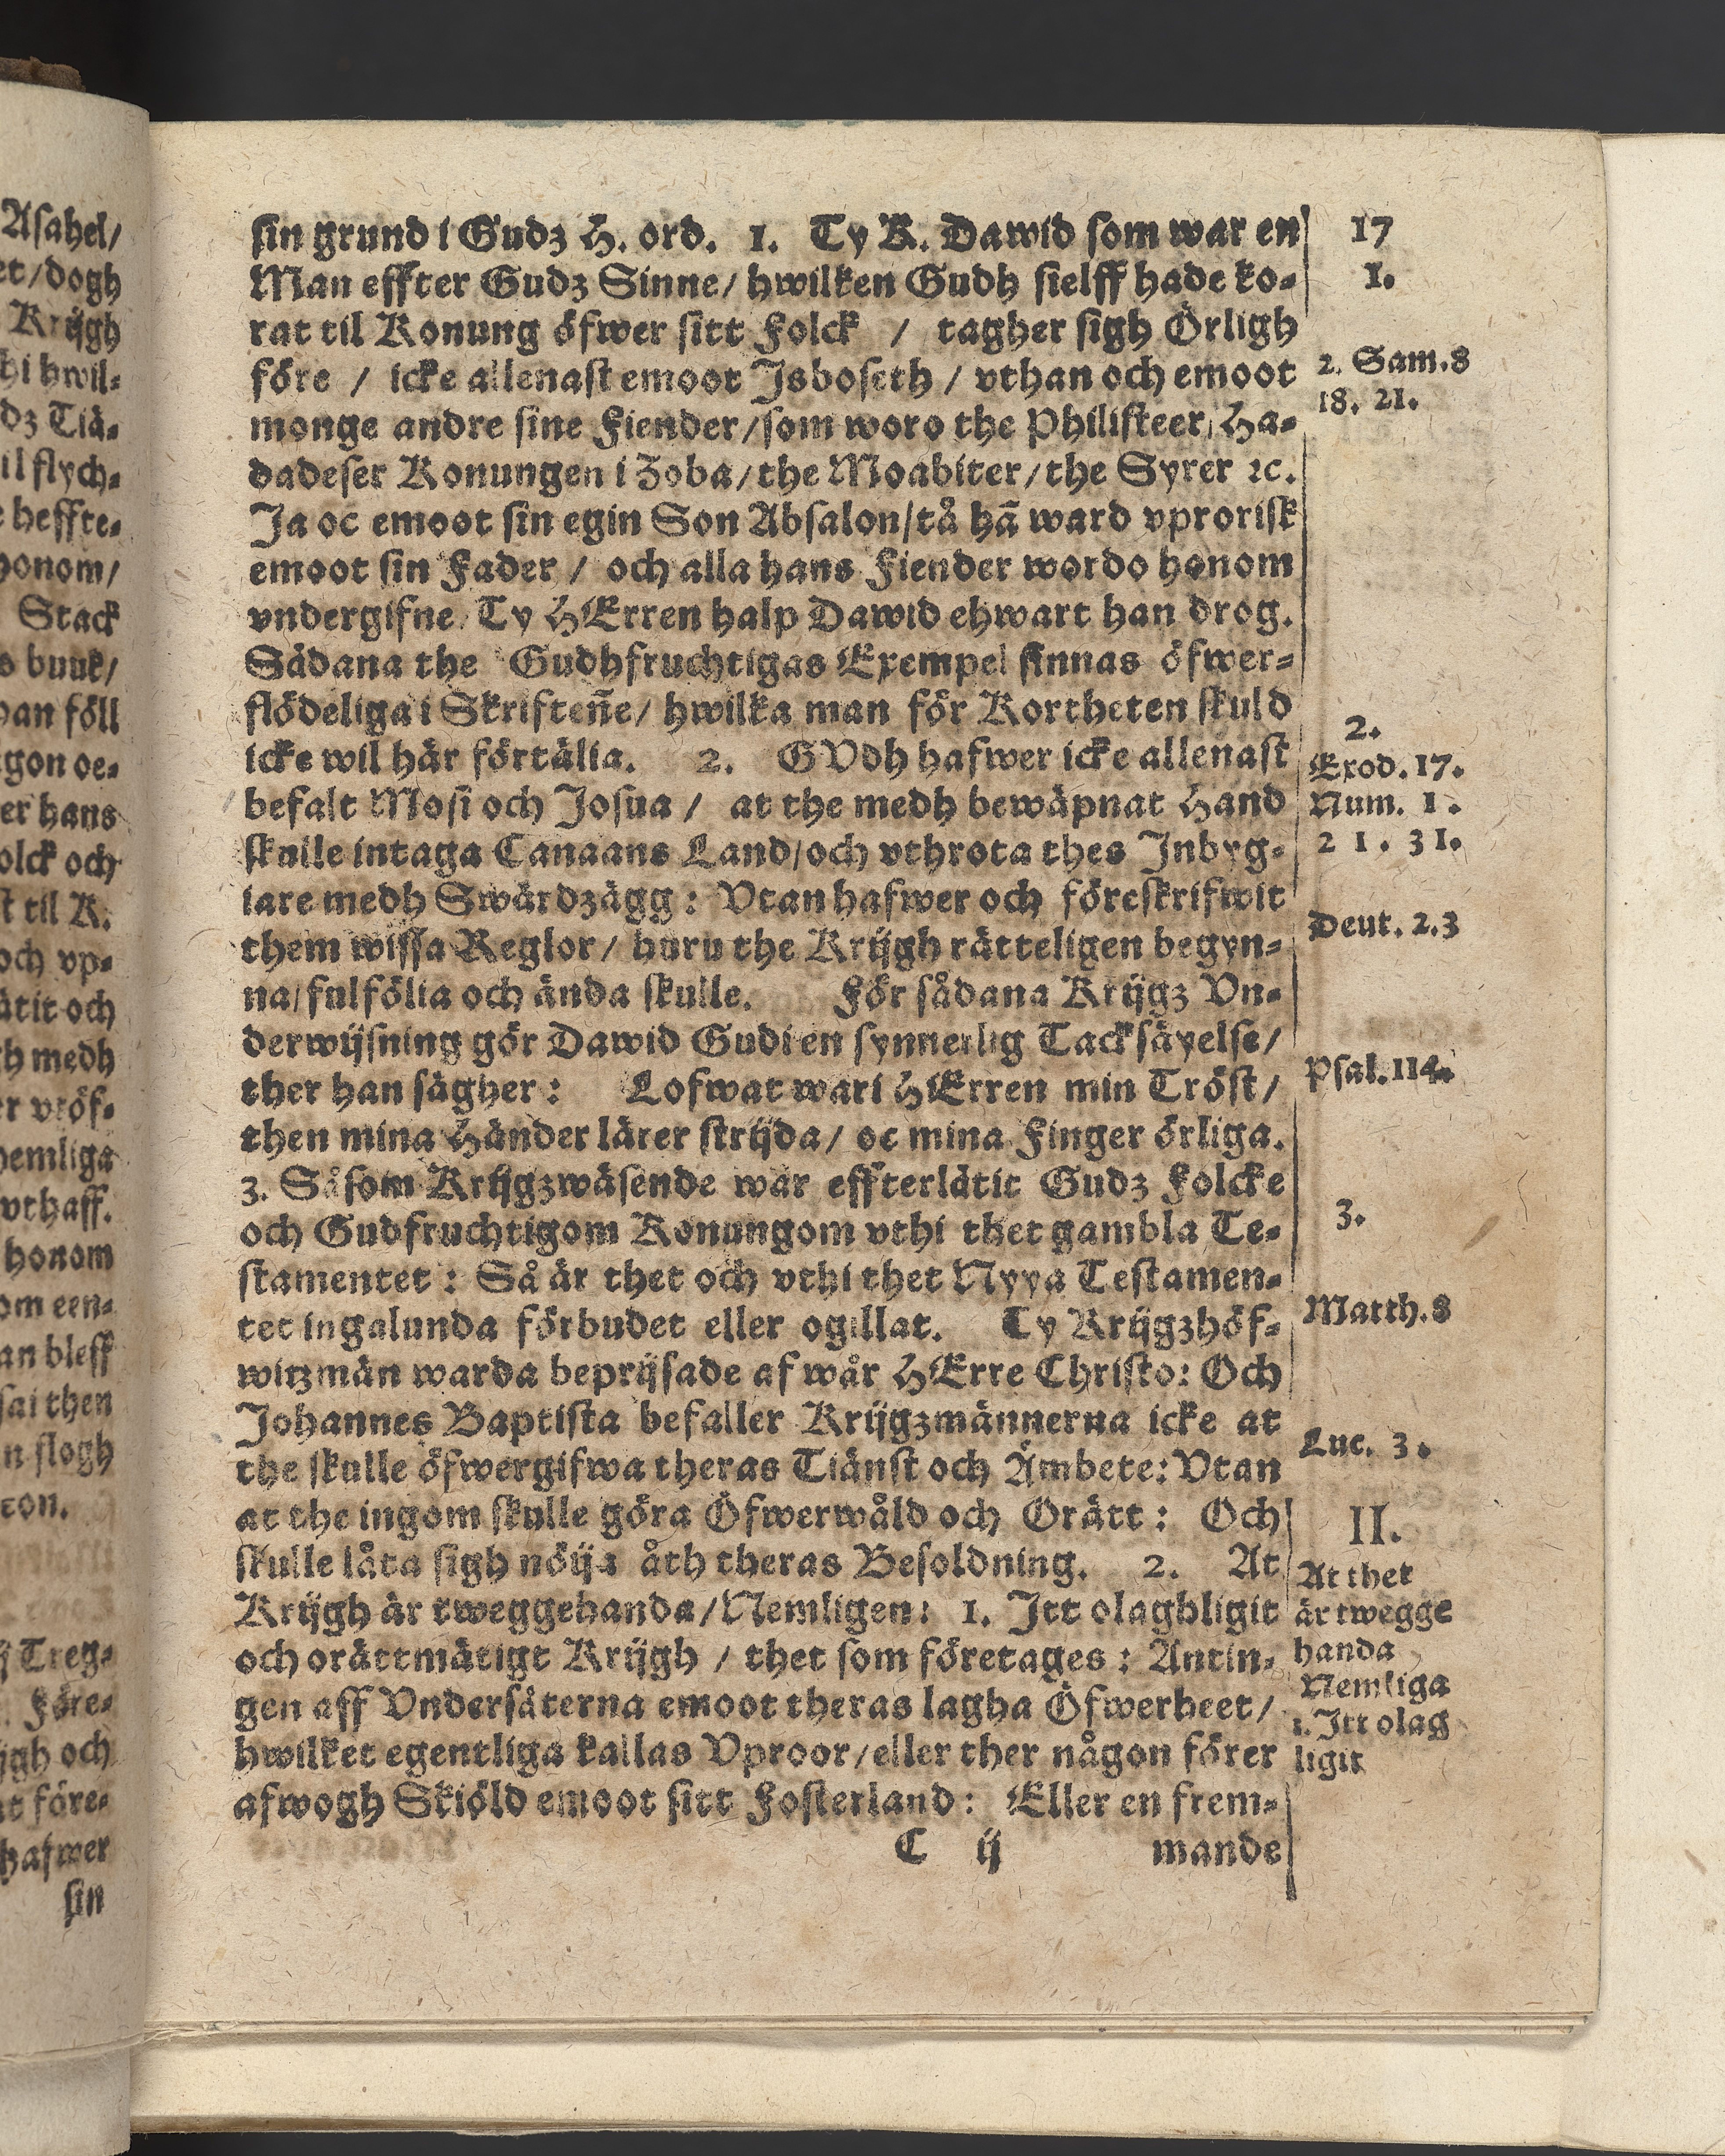 sin grund i Gudz H. ord. 1. Ty K. Dawid som war en
Man effter Gudz Sinne/ hwilken Gudh sielff hade ko-
rat til Konung öfwer sitt Folck / tagher sigh Örligh
före / icke allenast emoot Jsboseth / vthan och emoot
monge andre sine Fiender/som woro the Philisteer/ Ha-
dadeser Konungen i Zoba/the Moabiter/the Syrer ꝛc.
Ja oc emoot sin egin Son Absalon/tå hā ward vprorisk
emoot sin Fader / och alla hans Fiender wordo honom
vndergifne/ Ty HErren halp Dawid ehwart han drog.
Sådana the Gudhfruchtigas Exempel finnas öfwer-
flödeliga i Skriften̄e/ hwilka man för Kortheten skuld
icke wil här förtälia. 2. GVdh hafwer icke allenast
befalt Mosi och Josua / at the medh bewäpnat Hand
skulle intaga Canaans Land/och vthrota thes Jnbyg-
iare medh Swärdzägg: Vtan hafwer och föreskrifwit
them wissa Reglor/ huru the Krijgh rätteligen begyn-
na/fulfölia och ända skulle. För sådana Krijgz Vn-
derwijsning gör Dawid Gudi en synnerlig Tacksäyelse/
ther han sägher: Lofwat wari HErren min Tröst/
then mina Händer lärer strijda/ oc mina Finger örliga.
3. Såsom Krijgzwäsende war effterlåtit Gudz Folcke
och Gudfruchtigom Konungom vthi thet gambla Te-
stamentet: Så är thet och vthi thet Nyya Testamen-
tet ingalunda förbudet eller ogillat. Ty Krijgzhöf-
witzmän warda beprijsade af wår HErre Christo: Och
Johannes Baptista befaller Krijgzmännerna icke at
the skulle öfwergifwa theras Tiänst och Ämbete: Vtan
at the ingom skulle göra Öfwerwåld och Orätt: Och
skulle låta sigh nöija åth theras Besoldning. 2. At
Krijgh är tweggehanda/Nemligen: 1. Jtt olaghligit
och orättmätigt Krijgh / thet som företages: Antin-
gen aff Vndersåterna emoot theras lagha Öfwerheet/
hwilket egentliga kallas Vproor/eller ther någon förer
afwogh Skiöld emoot sitt Fosterland: Eller en frem-
C ij mande
17
1.
2. Sam.8
18. 21.
2.
Exod. 17.
Num. 1.
21. 31.
Deut. 2.3
Psal. 114.
3.
Matth. 8
Luc. 3.
II.
At thet
är twegge
handa
Nemliga
1. Jtt olag
ligit
Asahel/
et/dogh
Krijgh
hi hwil-
dz Tiä-
il flych-
heffte-
honom/
Stack
buuk/
föll
gon oe-
er hans
olck och
til K.
och vp-
åtit och
medh
hemliga
vthaff.
honom
om een-
an bleff
sai then
slogh
Treg-
Före-
och
före-
hafwer
sin